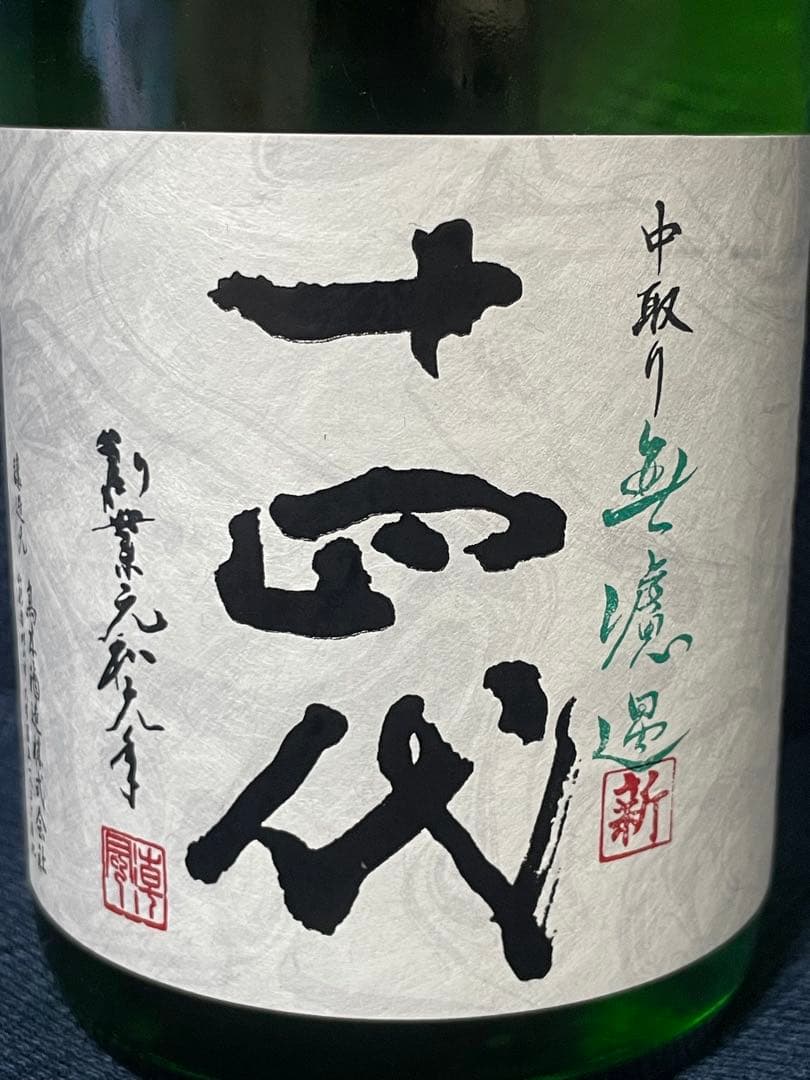 中取り無濾過
新
十四代
創業元和元年
高木酒造株式会社